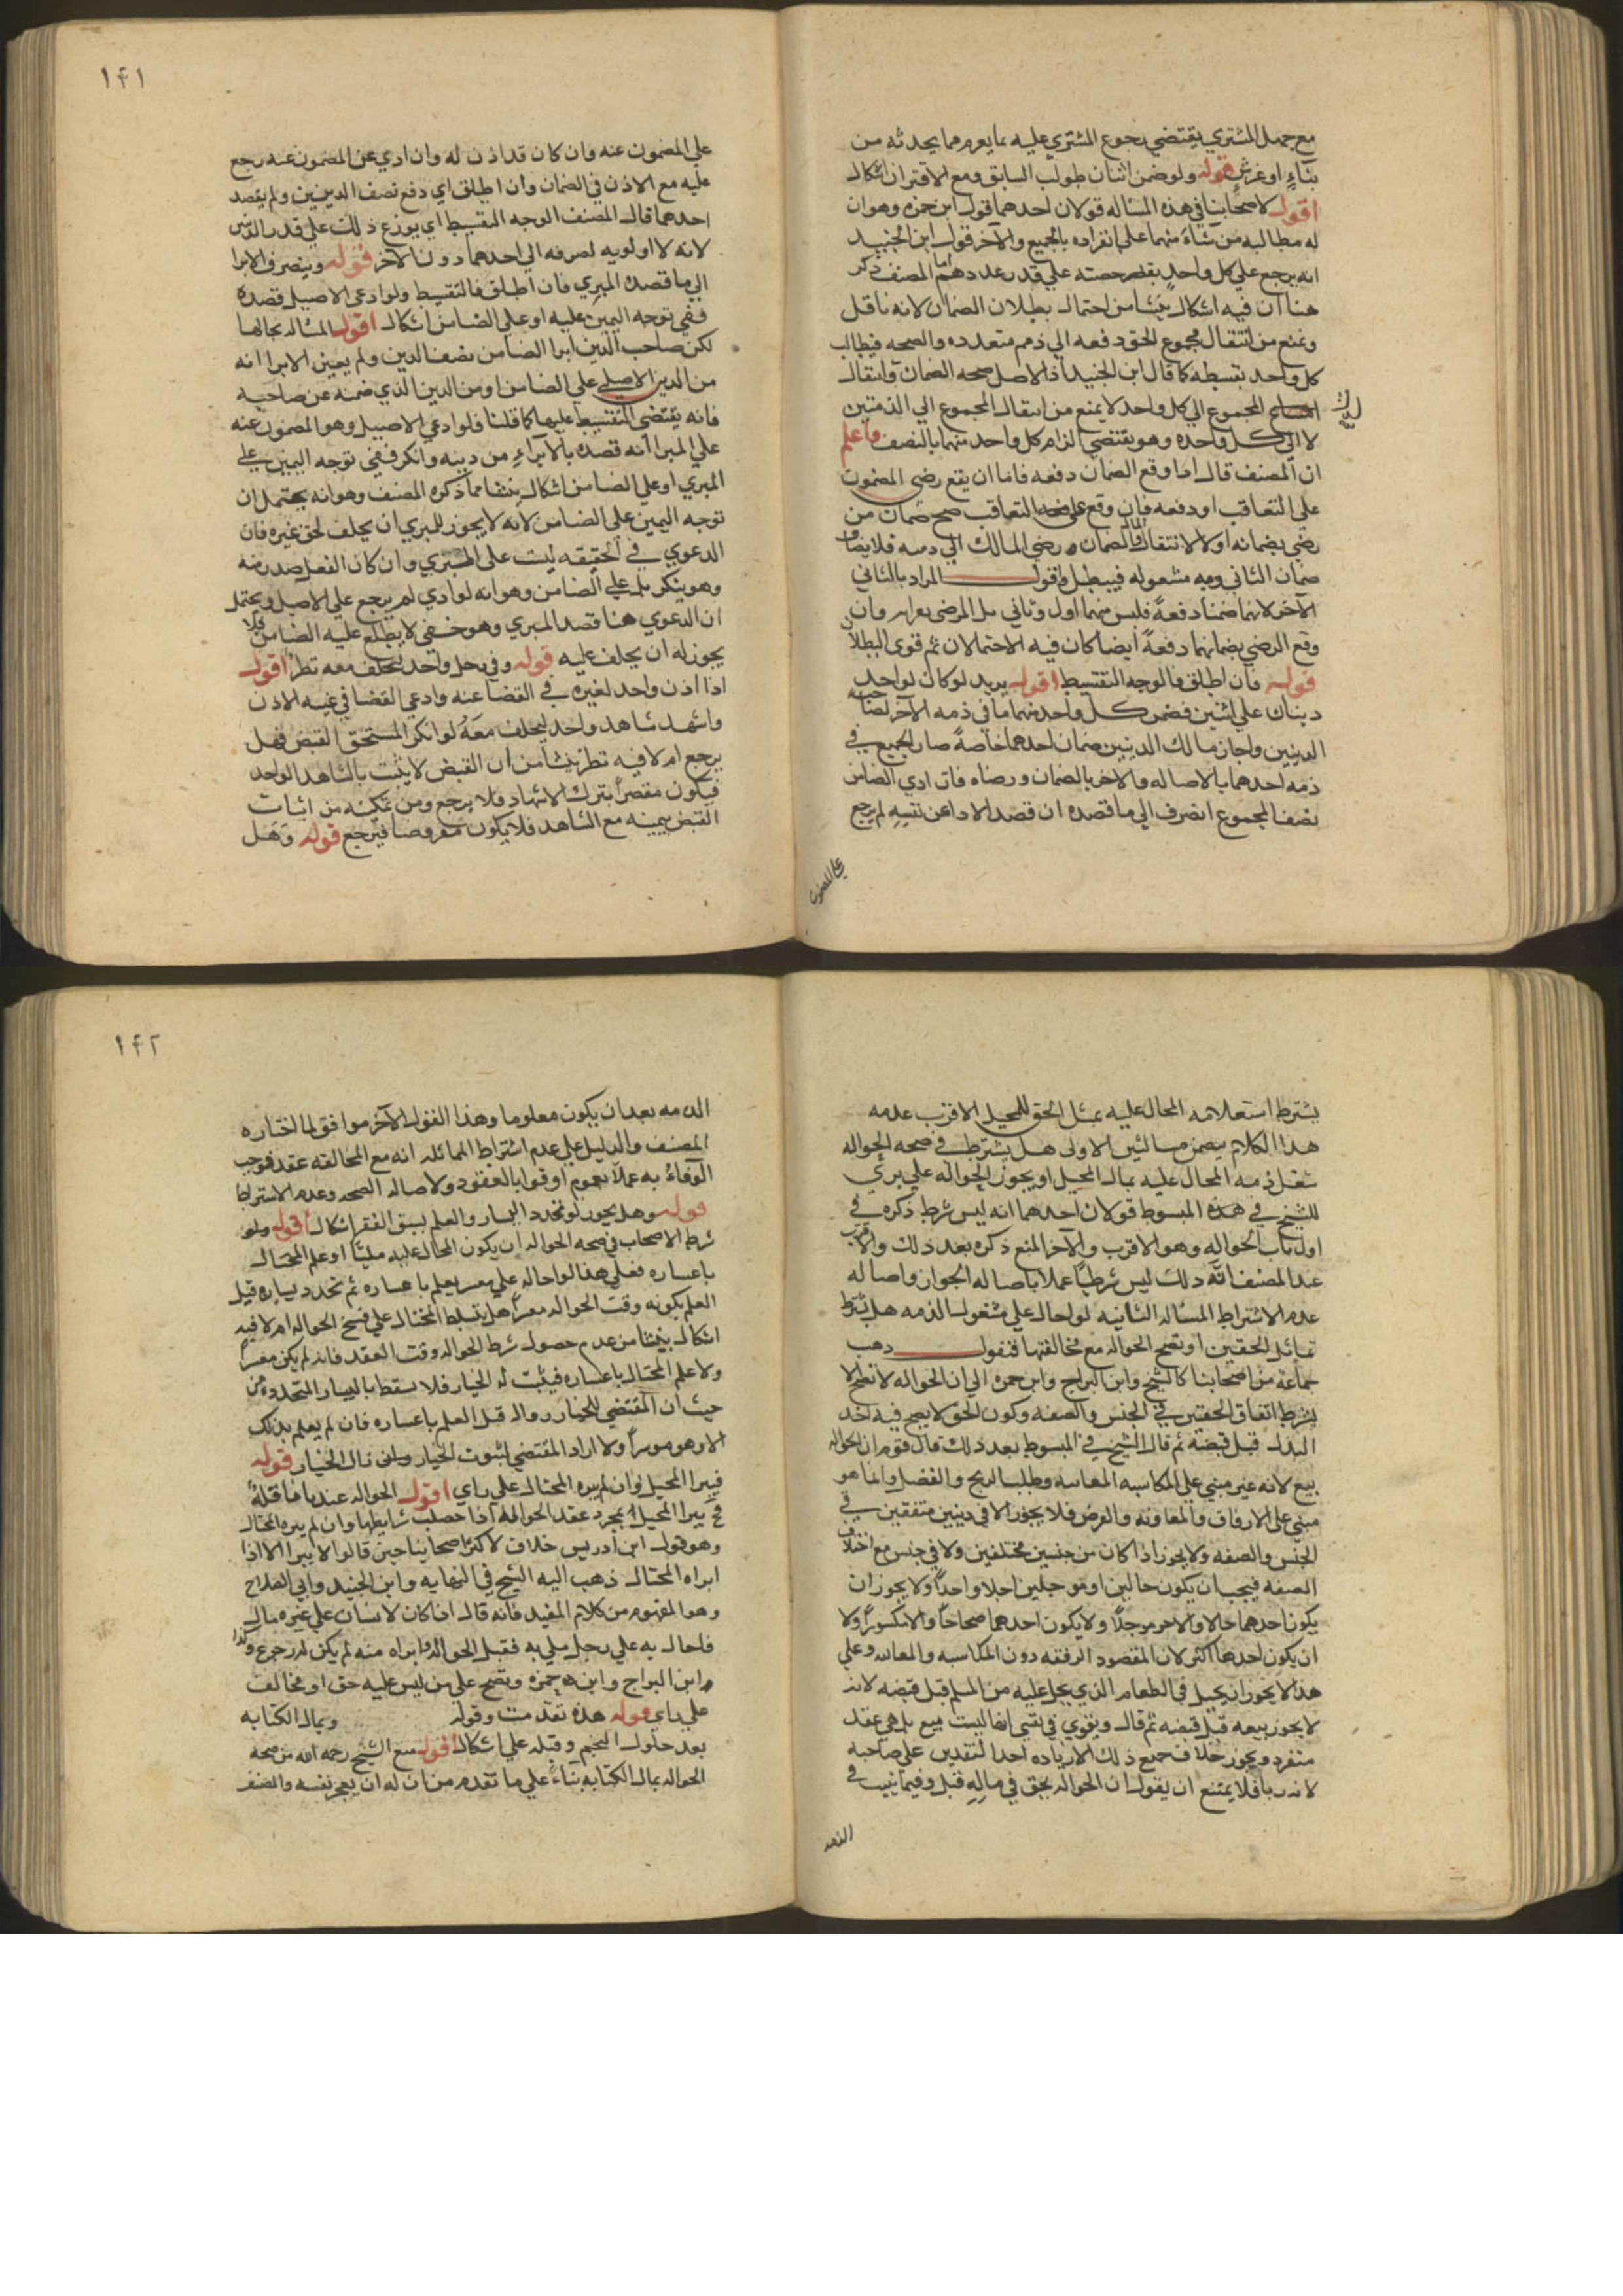 مع جهل المشتري يقتضي رجوع المشتري عليه بما يغرم مما يحدثه من
بناء او غرس قوله ولو ضمن اثنان طولب السابق ومع الاقتران اشكال
اقول لاصحابنا في هذه المساله قولان احدهما قول ابن حمزه وهو ان
له مطالبه من شاء منهما على انفراده بالجميع والآخر قول ابن الجنيد
انه يرجع على كل واحد بقدر حصته على قدر عددهم اما المصنف ذكر
هنا ان فيه اشكال ينشا من احتمال بطلان الضمان لانه ناقل
ويمنع من انتقال مجموع الحق دفعه الي ذمم متعدده والصحه فيطالب
كل واحد بقسطه كما قال ابن الجنيد اذ الاصل صحه الضمان وانتقال
المجموع الي كل واحد لا يمنع من انتقال المجموع الي الذمتين
لا الي كل واحده وهو يقتضي الزام كل واحد منهما بالنصف واعلم
ان المصنف قال اذا وقع الضمان دفعه فاما ان يقع رضي المضمون
على التعاقب او دفعه فان وقع على التعاقب صح ضمان من
رضي بضمانه اولا لانتقال المال بالضمان ورضي المالك الي ذمته فلا يصادف
ضمان الثاني ذمه مشغوله فيبطل واقول المراد بالثاني
الآخر لانهما ضمنا دفعةً فليس منهما اول وثاني بل المرضي بعدام وان
وقع الرضي بضمانهما دفعةً ايضا كان فيه الاحتمالان ثم قوى البطلان
قوله فان اطلق فالوجه التقسيط اقول يريد لو كان لواحد
دينان على اثنين فضمن كل واحد منهما ما في ذمه الآخر لصاحب
الدينين واجاز مالك الدينين ضمان احدهما خاصةً صار الجميع في
ذمه احدهما بالاصاله والاخر بالضمان ورضاه فان ادي الضامن
نصف المجموع انصرف الي ما قصده ان قصد الاداء عن نفسه لم يرجع
على المضمون
١٤١
على المضمون عنه وان كان قد اذن له وان ادي عن المضمون عنه رجع
عليه مع الاذن في الضمان وان اطلق اي دفع نصف الدينين ولم يقصد
احدهما قال المصنف الوجه التقسيط اي يوزع ذلك على قدر الدين
لانه لا اولويه لصرفه الي احدهما دون الآخر قوله وينصرف الابرا
الي ما قصده المبري فان اطلق فالتقسيط ولو ادعى الاصيل قصده
ففي توجه اليمين عليه او على الضامن اشكال اقول المساله بحالها
لكن صاحب الدين ابرا الضامن من نصف الدين ولم يعين الابرا انه
من الدين الاصلي على الضامن او من الدين الذي ضمنه عن صاحبه
فانه يقتضي التقسيط عليهما كما قلنا فلو ادعي الاصيل وهو المضمون عنه
على المبرا انه قصده بالابراء من دينه وانكر ففي توجه اليمين على
المبري او على الضامن اشكال ينشا مما ذكره المصنف وهو انه يحتمل ان
توجه اليمين على الضامن لانه لا يجوز للمبري ان يحلف لحق غيره فان
الدعوي في الحقيقه ليست على المبري وان كان الفعل صدر منه
وهو ينكر بل على الضامن وهو انه لو ادي لم يرجع على الاصيل ويحتمل
ان الدعوي هنا قصد المبري وهو خفي لا يطلع عليه الضامن فلا
يجوز له ان يحلف عليه قوله وفي رجل واحد ليحلف معه نظر اقول
اذا اذن واحد لغيره في القضا عنه وادعي القضا في غيبه الاذن
واشهد شاهد واحد ليحلف معه لو انكر المستحق القبض فهل
يرجع ام لا فيه نظر ينشا من ان القبض لا يثبت بالشاهد الواحد
فيكون مقصراً بترك الاشهاد فلا يرجع ومن تمكنه من اثبات
القبض بيمينه مع الشاهد فلا يكون مفرطا فيرجع قوله وهل
يشترط استعلام المحال عليه بمثل الحق للمحيل الاقرب عدمه
هذا الكلام يتضمن مسالتين الاولى هل يشترط في صحه الحواله
شغل ذمه المحال عليه بمال المحيل او يجوز الحواله على بري
للشيخ في هذه المبسوط قولان احدهما انه ليس شرط ذكره في
اول باب الحواله وهو الاقرب والآخر المنع ذكره بعد ذلك والاقرب
عند المصنف انّه ذلك ليس شرطياً عملا باصاله الجواز واصاله
عدم الاشتراط المساله الثانيه لو احال على مشغول الذمه هل يشترط
تماثل الحقين او تصح الحواله مع مخالفتهما فنقول ذهب
جماعه من اصحابنا كالشيخ وابن البراج وابن حمزه الي ان الحواله لا تصح الا
بشرط اتفاق الحقين في الجنس والصفه وكون الحق لا يصح فيه اخذ
البدل قبل قبضه ثم قال الشيخ في المبسوط بعد ذلك قال قوم ان الحواله
بيع لانه غير مبني على المكاسبه المغابنه وطلب الربح والفضل وانما هو
مبني على الارفاق والمعاونه والعرض فلا يجوز الا في دينين متفقين في
الجنس والصفه ولا يجوز اذا كان من جنسين مختلفين ولا في جنس مع اختلاف
الصفه فيجب ان يكون حالين او موجلين اجلا واحداً ولا يجوز ان
يكون احدهما حالا والاخر موجلا ولا يكون احدهما صحاحاً والاخر مكسوراً ولا
ان يكون احدهما اكثر لان المقصود الرفقه دون المكاسبه والمغابنه وعلى
هذا لا يجوز ان يحيل في الطعام الذي يحل عليه من السلم قبل قبضه لانه
لا يجوز بيعه قبل قبضه ثم قال ويقوي في نفسي انها ليست بيع بل هي عقد
منفرد ويجوز خلاف جميع ذلك الا زياده احد النقدين على صاحبه
لانه ربا فلا يمتنع ان يقول ان الحواله بحق في ماله قبل وفيما يثبت في
الذمه
١٤٢
الذمه بعد ان يكون معلوما وهذا القول الآخر موافق لما اختاره
المصنف والدليل على عدم اشتراط المماثله انه مع المخالفه عقد فوجب
الوفاء به عملا بعموم اوفوا بالعقود ولاصاله الصحه وعدم الاشتراط
قوله وهل يجوز لو تجدد اليسار والعلم بسبق الفقر اشكال اقول
شرط الاصحاب في صحه الحواله ان يكون المحال عليه مليّا او علم المحتال
باعساره فعلى هذا لو احاله على معسر لم يعلم باعساره ثم تجدد يساره قبل
العلم بكونه وقت الحواله معسراً هل يتسلط المحتال على فسخ الحواله ام لا فيه
اشكال ينشا من عدم حصول شرط الحواله وقت العقد فانه لم يكن موسراً
ولا علم المحتال باعساره فيثبت له الخيار فلا يسقط باليسار المتجدد ومن
حيث ان المقتضي للخيار زواله قبل العلم باعساره فان لم يعلم بذلك
الا وهو موسراً ولما زاد المقتضي لثبوت الخيار زال الخيار قوله
فيبرا المحيل وان لم يبره المحتال على راي اقول الحواله عندنا ناقلةٌ
فيبرا المحيل بمجرد عقد الحواله اذا حصلت شرايطها وان لم يبره المحتال
وهو قول ابن ادريس خلاف لاكثر اصحابنا حين قالوا لا يبرا الا اذا
ابراه المحتال ذهب اليه الشيخ في النهايه وابن الجنيد وابي الصلاح
وهو المفهوم من كلام المفيد فانه قال اذا كان لانسان على غيره مال
فاحال به على رجل ملي به فقبل الحواله وابراه منه لم يكن له رجوع وكذا
وابن البراج وابن حمزه وتصح على من ليس عليه حق او مخالف
على راي قوله هذه تقدمت وقوله وبمال الكتابه
بعد حلول النجم وقبله على اشكال اقول منع الشيخ رحمه الله من صحه
الحواله بمال الكتابه بناءً على ما تقدم من ان له ان يعجز نفسه والمصنف